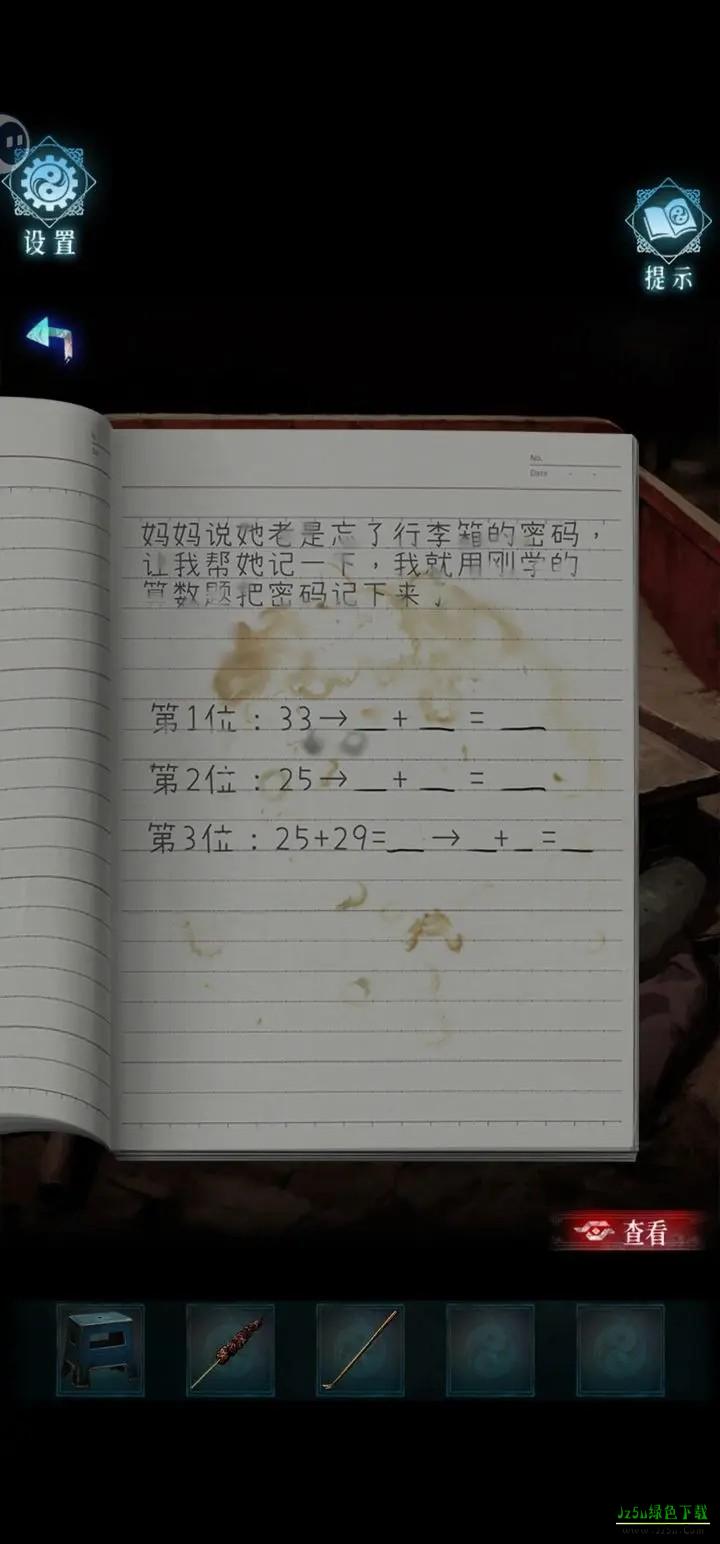 设置
提示
No.
Date
妈妈说她老是忘了行李箱的密码，
让我帮她记一下，我就用刚学的
算数题把密码记下来了
第1位：33→__+__=__
第2位：25→__+__=__
第3位：25+29=__→__+__=__
查看
Jz5u绿色下载
www.jz5u.com